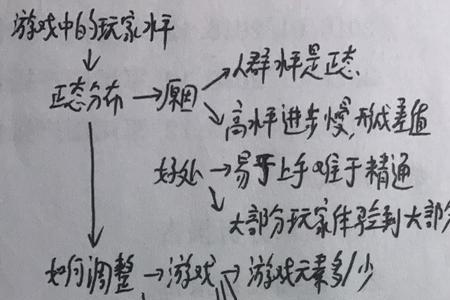 游戏中的玩家水平
正态分布 → 原因
人群水平是正态
高水平进步慢,形成差值
好处 → 易于上手 难于精通
大部分玩家体验到大部分
如何调整 → 游戏 → 游戏元素多/少